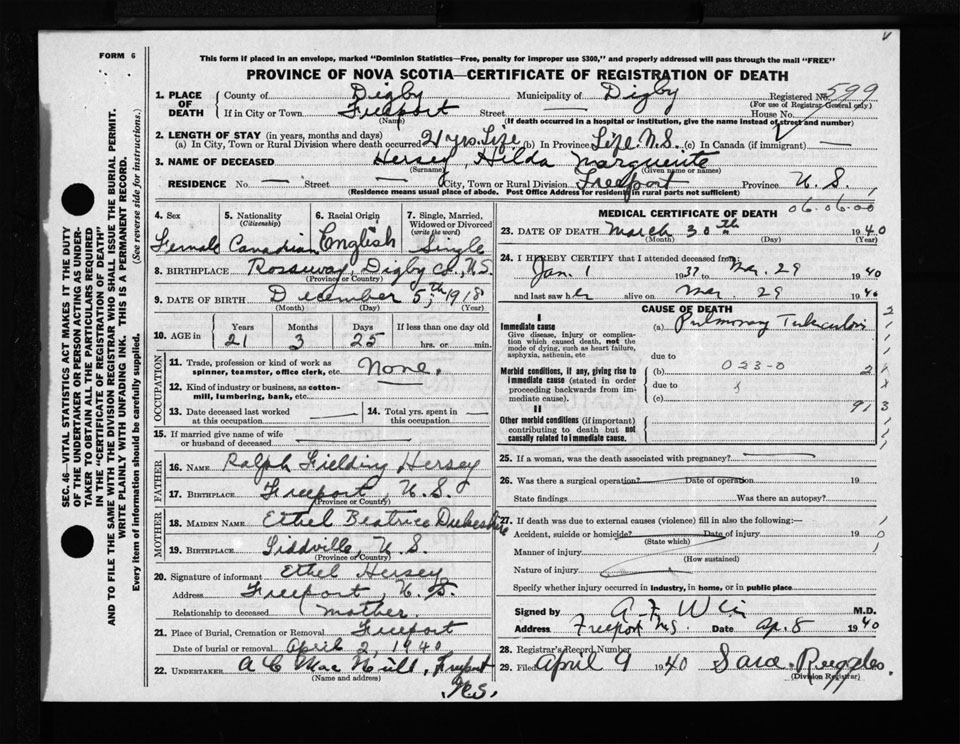 FORM 6
This form if placed in an envelope, marked "Dominion Statistics—Free, penalty for improper use $300," and properly addressed will pass through the mail "FREE"
PROVINCE OF NOVA SCOTIA—CERTIFICATE OF REGISTRATION OF DEATH
1. PLACE OF DEATH County of Digby Municipality of Digby Registered No. 599
(For use of Registrar General only)
If in City or Town Freeport Street — House No.
(Name) (If death occurred in a hospital or institution, give the name instead of street and number)
2. LENGTH OF STAY (in years, months and days)
(a) In City, Town or Rural Division where death occurred 21 yrs. Life (b) In Province Life N.S. (c) In Canada (if immigrant) —
3. NAME OF DECEASED Hersey, Hilda Marguerite
(Surname) (Given name or names)
RESIDENCE No. — Street — City, Town or Rural Division Freeport Province N.S.
(Residence means usual place of abode. Post Office Address for residents in rural parts not sufficient)
4. Sex Female
5. Nationality (Citizenship) Canadian
6. Racial Origin English
7. Single, Married, Widowed or Divorced (write the word) Single
8. BIRTHPLACE Rossway, Digby Co., N.S.
(Province or Country)
9. DATE OF BIRTH December 5th, 1918
(Month) (Day) (Year)
10. AGE in Years Months Days If less than one day old
21 3 25 hrs. or min.
OCCUPATION
11. Trade, profession or kind of work as spinner, teamster, office clerk, etc. None.
12. Kind of industry or business, as cotton-mill, lumbering, bank, etc. —
13. Date deceased last worked at this occupation —
14. Total yrs. spent in this occupation —
15. If married give name of wife or husband of deceased —
FATHER
16. NAME Ralph Fielding Hersey
17. BIRTHPLACE Freeport, N.S.
(Province or Country)
MOTHER
18. MAIDEN NAME Ethel Beatrice Dukeshire
19. BIRTHPLACE N.S.
(Province or Country)
20. Signature of informant Ethel Hersey
Address Freeport, N.S.
Relationship to deceased mother.
21. Place of Burial, Cremation or Removal Freeport
Date of burial or removal April 2, 1940
22. UNDERTAKER A C MacNeill, Freeport
(Name and address)
N.S.
MEDICAL CERTIFICATE OF DEATH
06.06.00
23. DATE OF DEATH March 30th 1940
(Month) (Day) (Year)
24. I HEREBY CERTIFY that I attended deceased from:
Jan. 1 1937 Mar. 29 1940
and last saw her alive on Mar. 29 1940
CAUSE OF DEATH
I
Immediate cause (a) Pulmonary
Give disease, injury or complication which caused death, not the mode of dying, such as heart failure, asphyxia, asthenia, etc
due to
Morbid conditions, if any, giving rise to immediate cause (stated in order proceeding backwards from immediate cause). (b) 023-0
due to
(c)
II
Other morbid conditions (if important) contributing to death but not causally related to immediate cause.
913
25. If a woman, was the death associated with pregnancy? —
26. Was there a surgical operation? Date of operation 19
State findings Was there an autopsy?
27. If death was due to external causes (violence) fill in also the following:—
Accident, suicide or homicide? Date of injury 19
(State which)
Manner of injury
(How sustained)
Nature of injury
Specify whether injury occurred in industry, in home, or in public place
Signed by M.D.
Address Freeport N.S. Date Ap. 8 1940
28. Registrar's Record Number
29. Filed April 9 1940 Sara Ruggles
(Division Registrar)
SEC. 46—VITAL STATISTICS ACT MAKES IT THE DUTY OF THE UNDERTAKER OR PERSON ACTING AS UNDERTAKER TO OBTAIN ALL THE PARTICULARS REQUIRED IN THE "CERTIFICATE OF REGISTRATION OF DEATH" AND TO FILE THE SAME WITH THE DIVISION REGISTRAR WHO SHALL ISSUE THE BURIAL PERMIT.
WRITE PLAINLY WITH UNFADING INK. THIS IS A PERMANENT RECORD.
Every item of information should be carefully supplied. (See reverse side for instructions.)